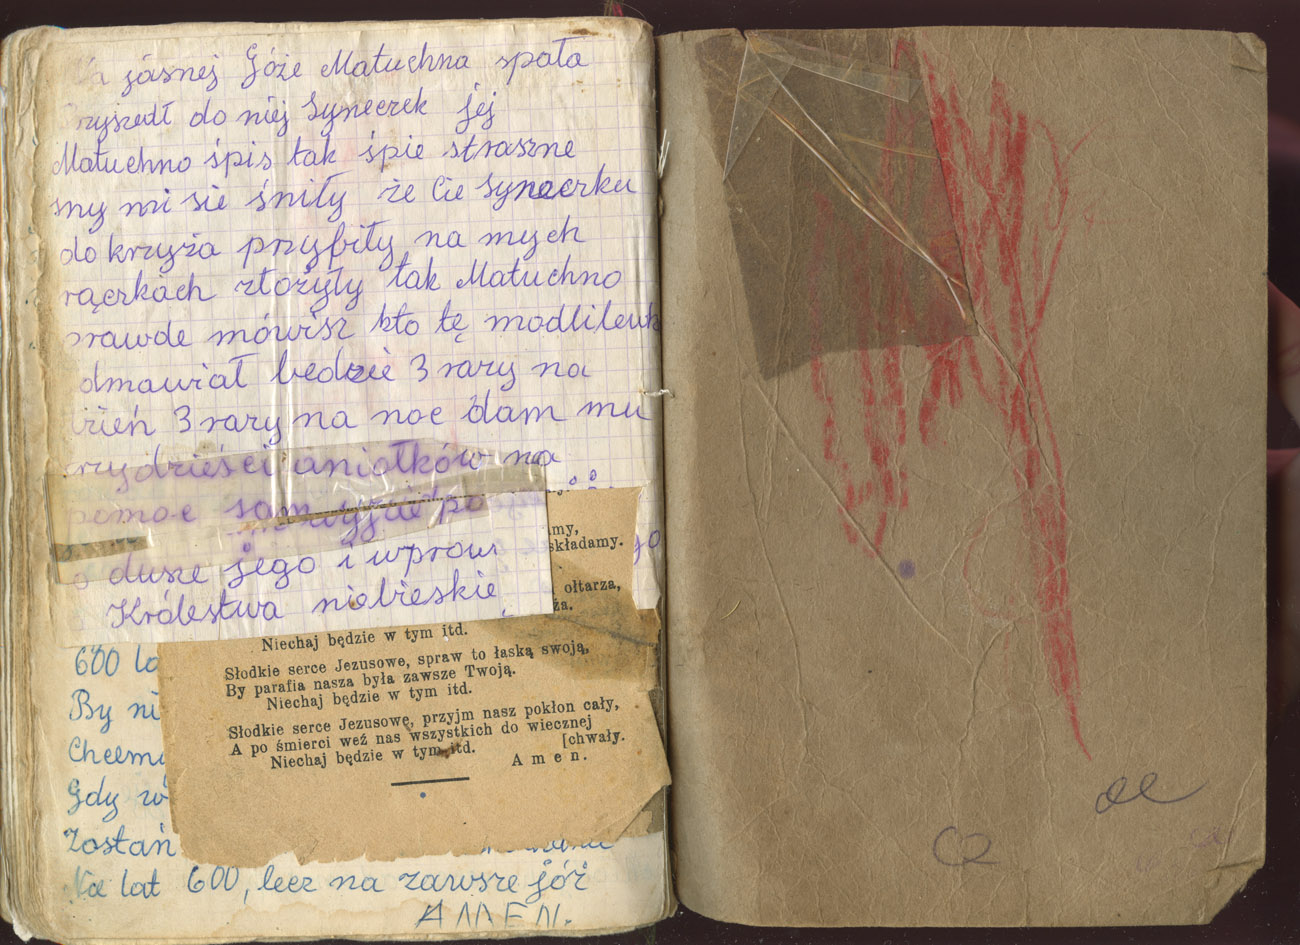 Na jasnej Góże Matuchna spała
rzyszedł do niej Syneczek jej
Matuchno śpis tak śpie straszne
sny mi sie śniły że Cie Syneczku
do krzyża przybiły na mych
rączkach złożyły tak Matuchno
prawde mówisz kto tę modlilewk
dmawiał bedzie 3 razy na
dzień 3 razy na noc dam mu
trzydzieści aniołków na
pomoc sam wyjde po
dusze jego i wprow
Królestwa niebieskie
amy,
składamy.
ołtarza,
Niechaj będzie w tym itd.
Słodkie serce Jezusowe, spraw to łaską swoją,
By parafia nasza była zawsze Twoją.
Niechaj będzie w tym itd.
Słodkie serce Jezusowe, przyjm nasz pokłon cały,
A po śmierci weź nas wszystkich do wiecznej
[chwały.
Niechaj będzie w tym itd.
Amen.
600 la
By ni
Chcemy
Gdy w
Zostań
Na lat 600, lecz na zawsze jóż
AMEN.